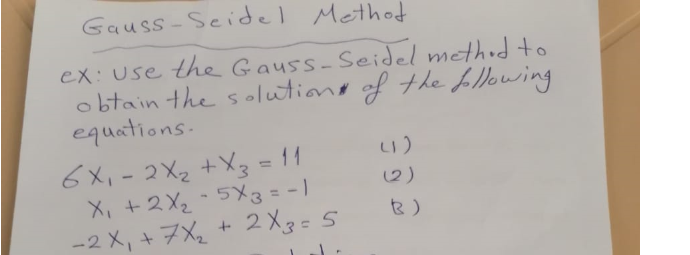 Gauss-Seidel Method
ex: use the Gauss-Seidel method to
obtain the solution of the following
equations.
6X₁ - 2X₂ + X₃ = 11 (1)
X₁ + 2X₂ - 5X₃ = -1 (2)
-2X₁ + 7X₂ + 2X₃ = 5 3)